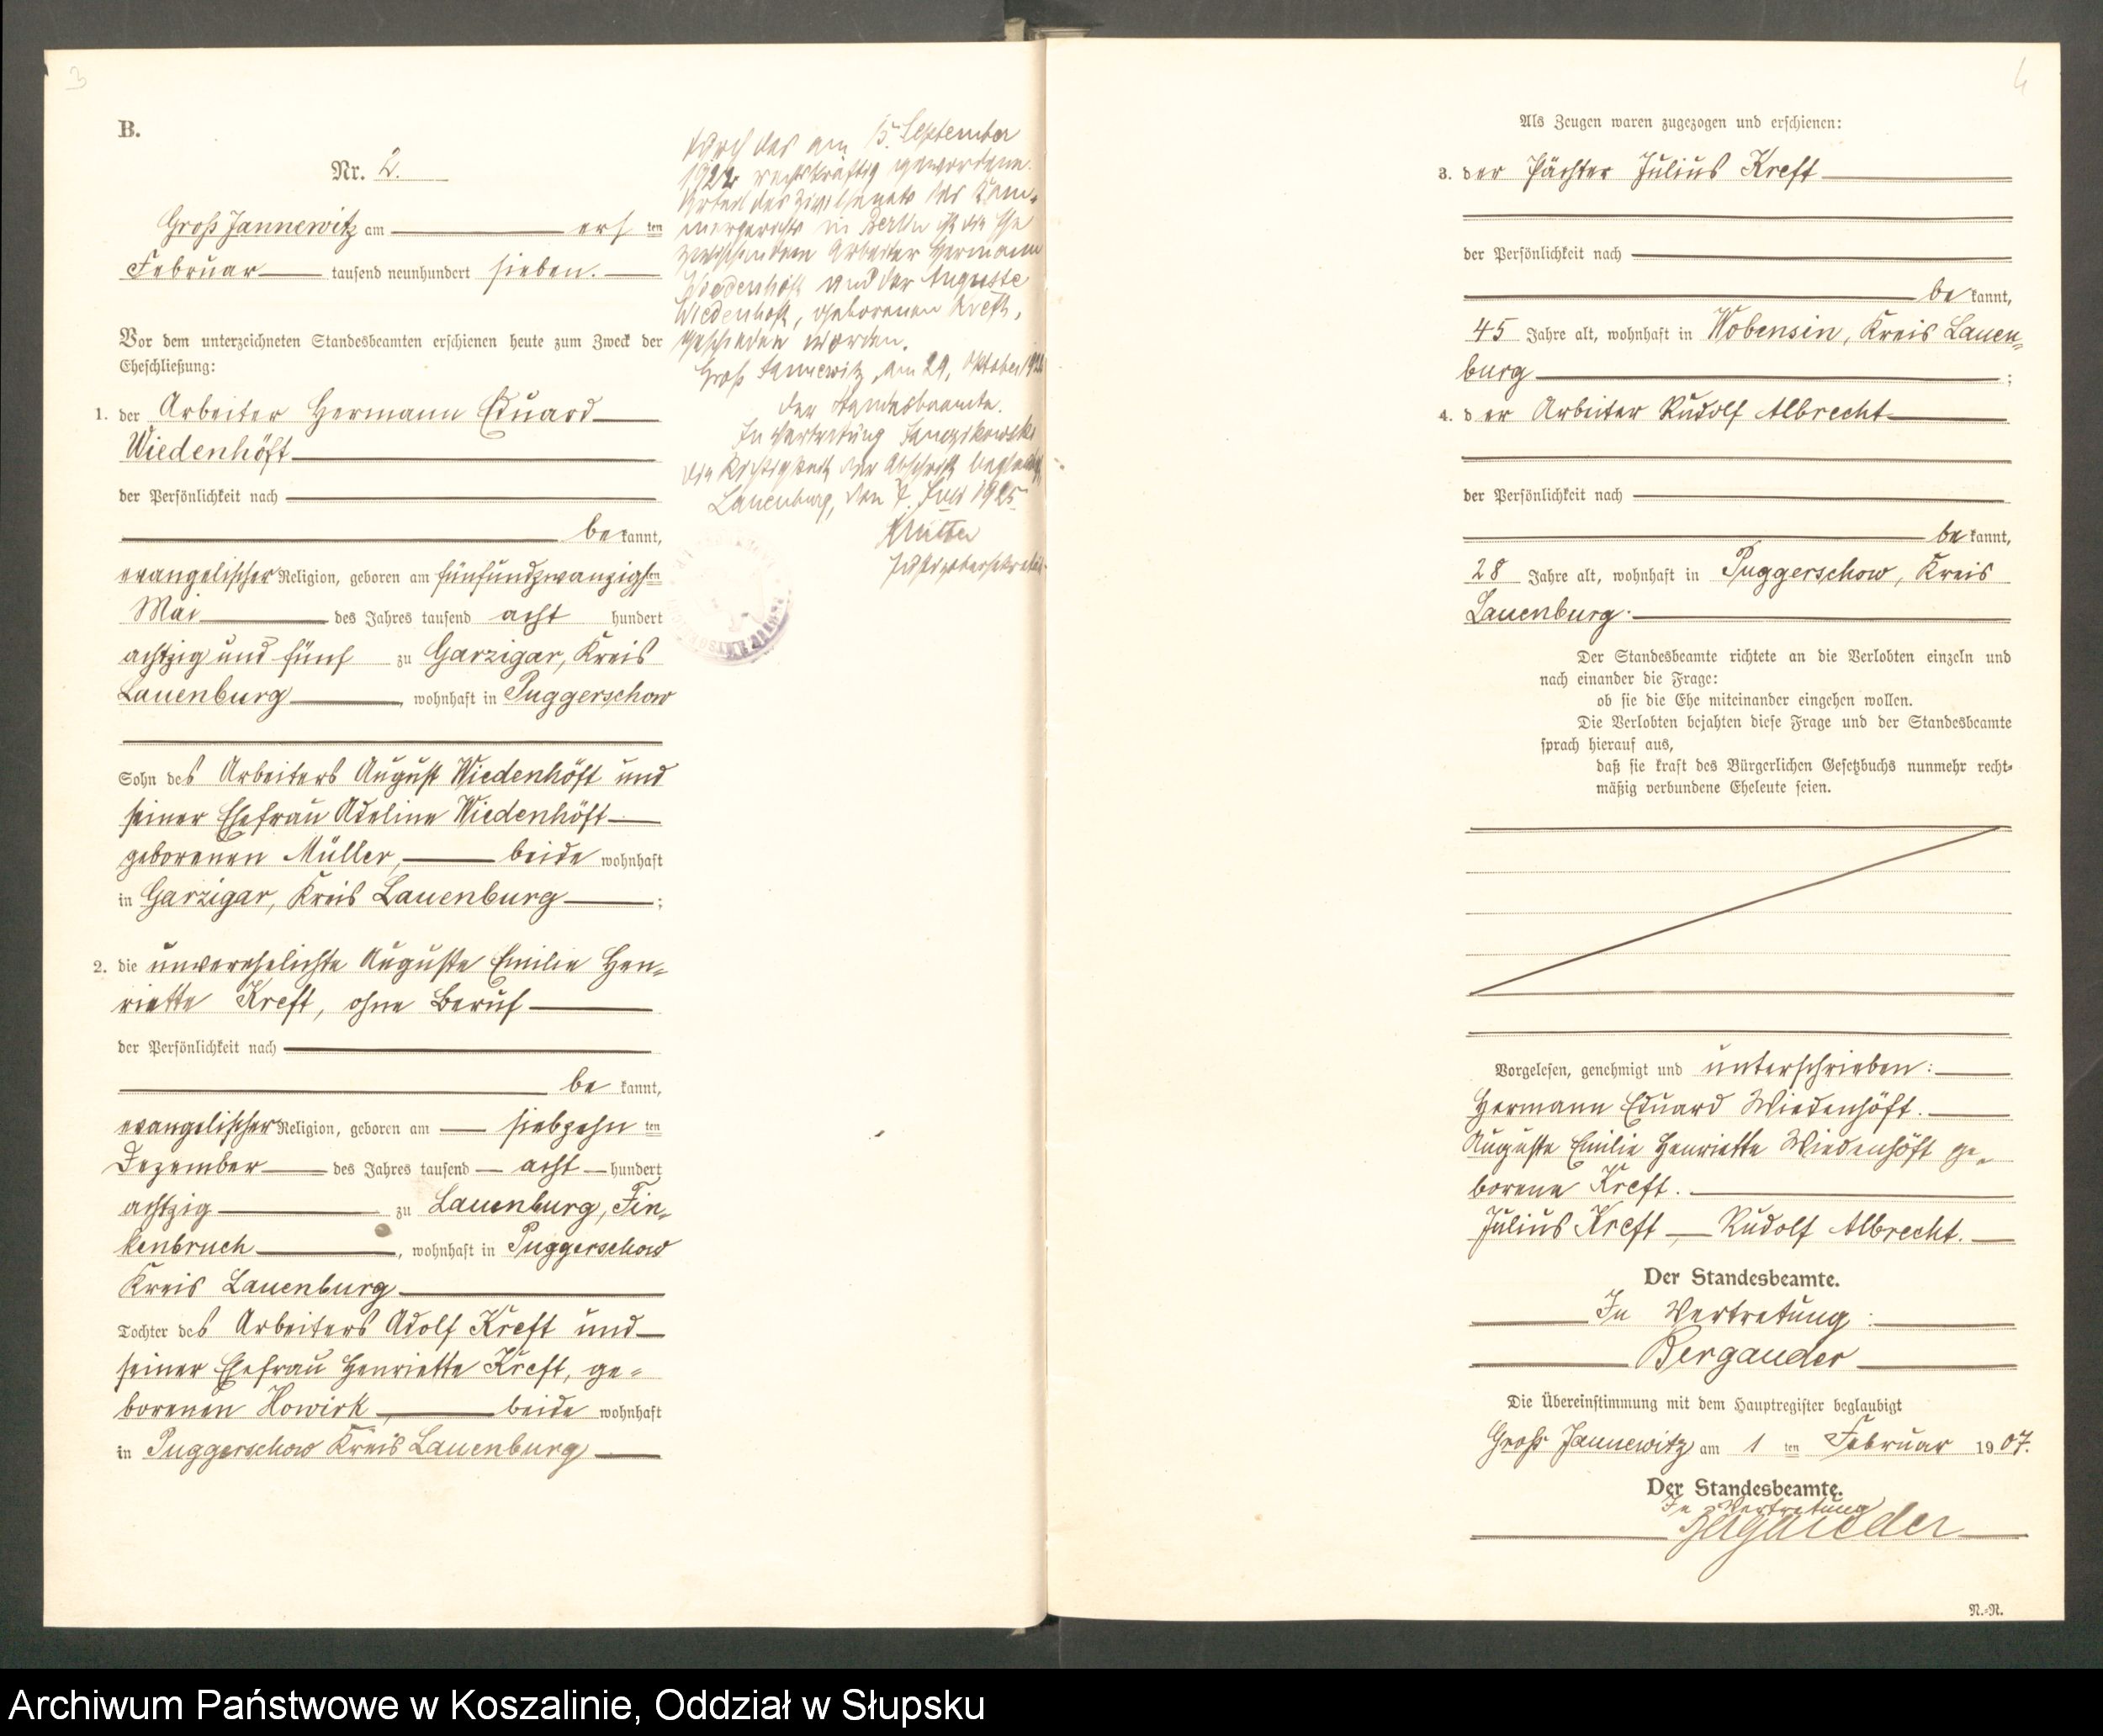 3
B.
Nr. 2.
Groß Jannewitz am ersten
Februar tausend neunhundert sieben.
Vor dem unterzeichneten Standesbeamten erschienen heute zum Zweck der
Eheschließung:
1. der Arbeiter Hermann Eduard
Wiedenhöft
der Persönlichkeit nach
bekannt,
evangelischer Religion, geboren am fünfundzwanzigsten
Mai des Jahres tausend acht hundert
achtzig und fünf zu Garzigar, Kreis
Lauenburg, wohnhaft in Puggerschow
Sohn des Arbeiters August Wiedenhöft und
seiner Ehefrau Adeline Wiedenhöft
geborenen Müller, beide wohnhaft
in Garzigar, Kreis Lauenburg;
2. die unverehelichte Auguste Emilie Hen-
riette Kreft, ohne Beruf
der Persönlichkeit nach
bekannt,
evangelischer Religion, geboren am siebzehnten
Dezember des Jahres tausend acht hundert
achtzig zu Lauenburg, Fin-
kenbruch, wohnhaft in Puggerschow
Kreis Lauenburg
Tochter des Arbeiters Adolf Kreft und
seiner Ehefrau Henriette Kreft, ge-
borenen Howirk, beide wohnhaft
in Puggerschow Kreis Lauenburg
Durch das am 15. September
1922 rechtskräftig gewordene
Urteil des Zivilsenats des Kam-
mergerichts in Berlin ist die Ehe
zwischen dem Arbeiter Hermann
Wiedenhöft und der Auguste
Wiedenhöft, geborenen Kreft,
geschieden worden.
Groß Jannewitz, am 29. Oktober
Der Standesbeamte.
In Vertretung
Die Richtigkeit der Abschrift beglaubigt
Lauenburg, den 7. Juli 1925
Justizobersekretär
4
Als Zeugen waren zugezogen und erschienen:
3. der Pächter Julius Kreft
der Persönlichkeit nach
bekannt,
45 Jahre alt, wohnhaft in Wobensin, Kreis Lauen-
burg;
4. der Arbeiter Rudolf Albrecht
der Persönlichkeit nach
bekannt,
28 Jahre alt, wohnhaft in Puggerschow, Kreis
Lauenburg.
Der Standesbeamte richtete an die Verlobten einzeln und
nach einander die Frage:
ob sie die Ehe miteinander eingehen wollen.
Die Verlobten bejahten diese Frage und der Standesbeamte
sprach hierauf aus,
daß sie kraft des Bürgerlichen Gesetzbuchs nunmehr recht-
mäßig verbundene Eheleute seien.
Vorgelesen, genehmigt und unterschrieben:
Hermann Eduard Wiedenhöft.
Auguste Emilie Henriette Wiedenhöft ge-
borene Kreft.
Julius Kreft — Rudolf Albrecht.
Der Standesbeamte.
In Vertretung:
Bergander
Die Übereinstimmung mit dem Hauptregister beglaubigt
Groß Jannewitz am 1ten Februar 1907.
Der Standesbeamte.
In Vertretung
Bergander
N.-N.
Archiwum Państwowe w Koszalinie, Oddział w Słupsku